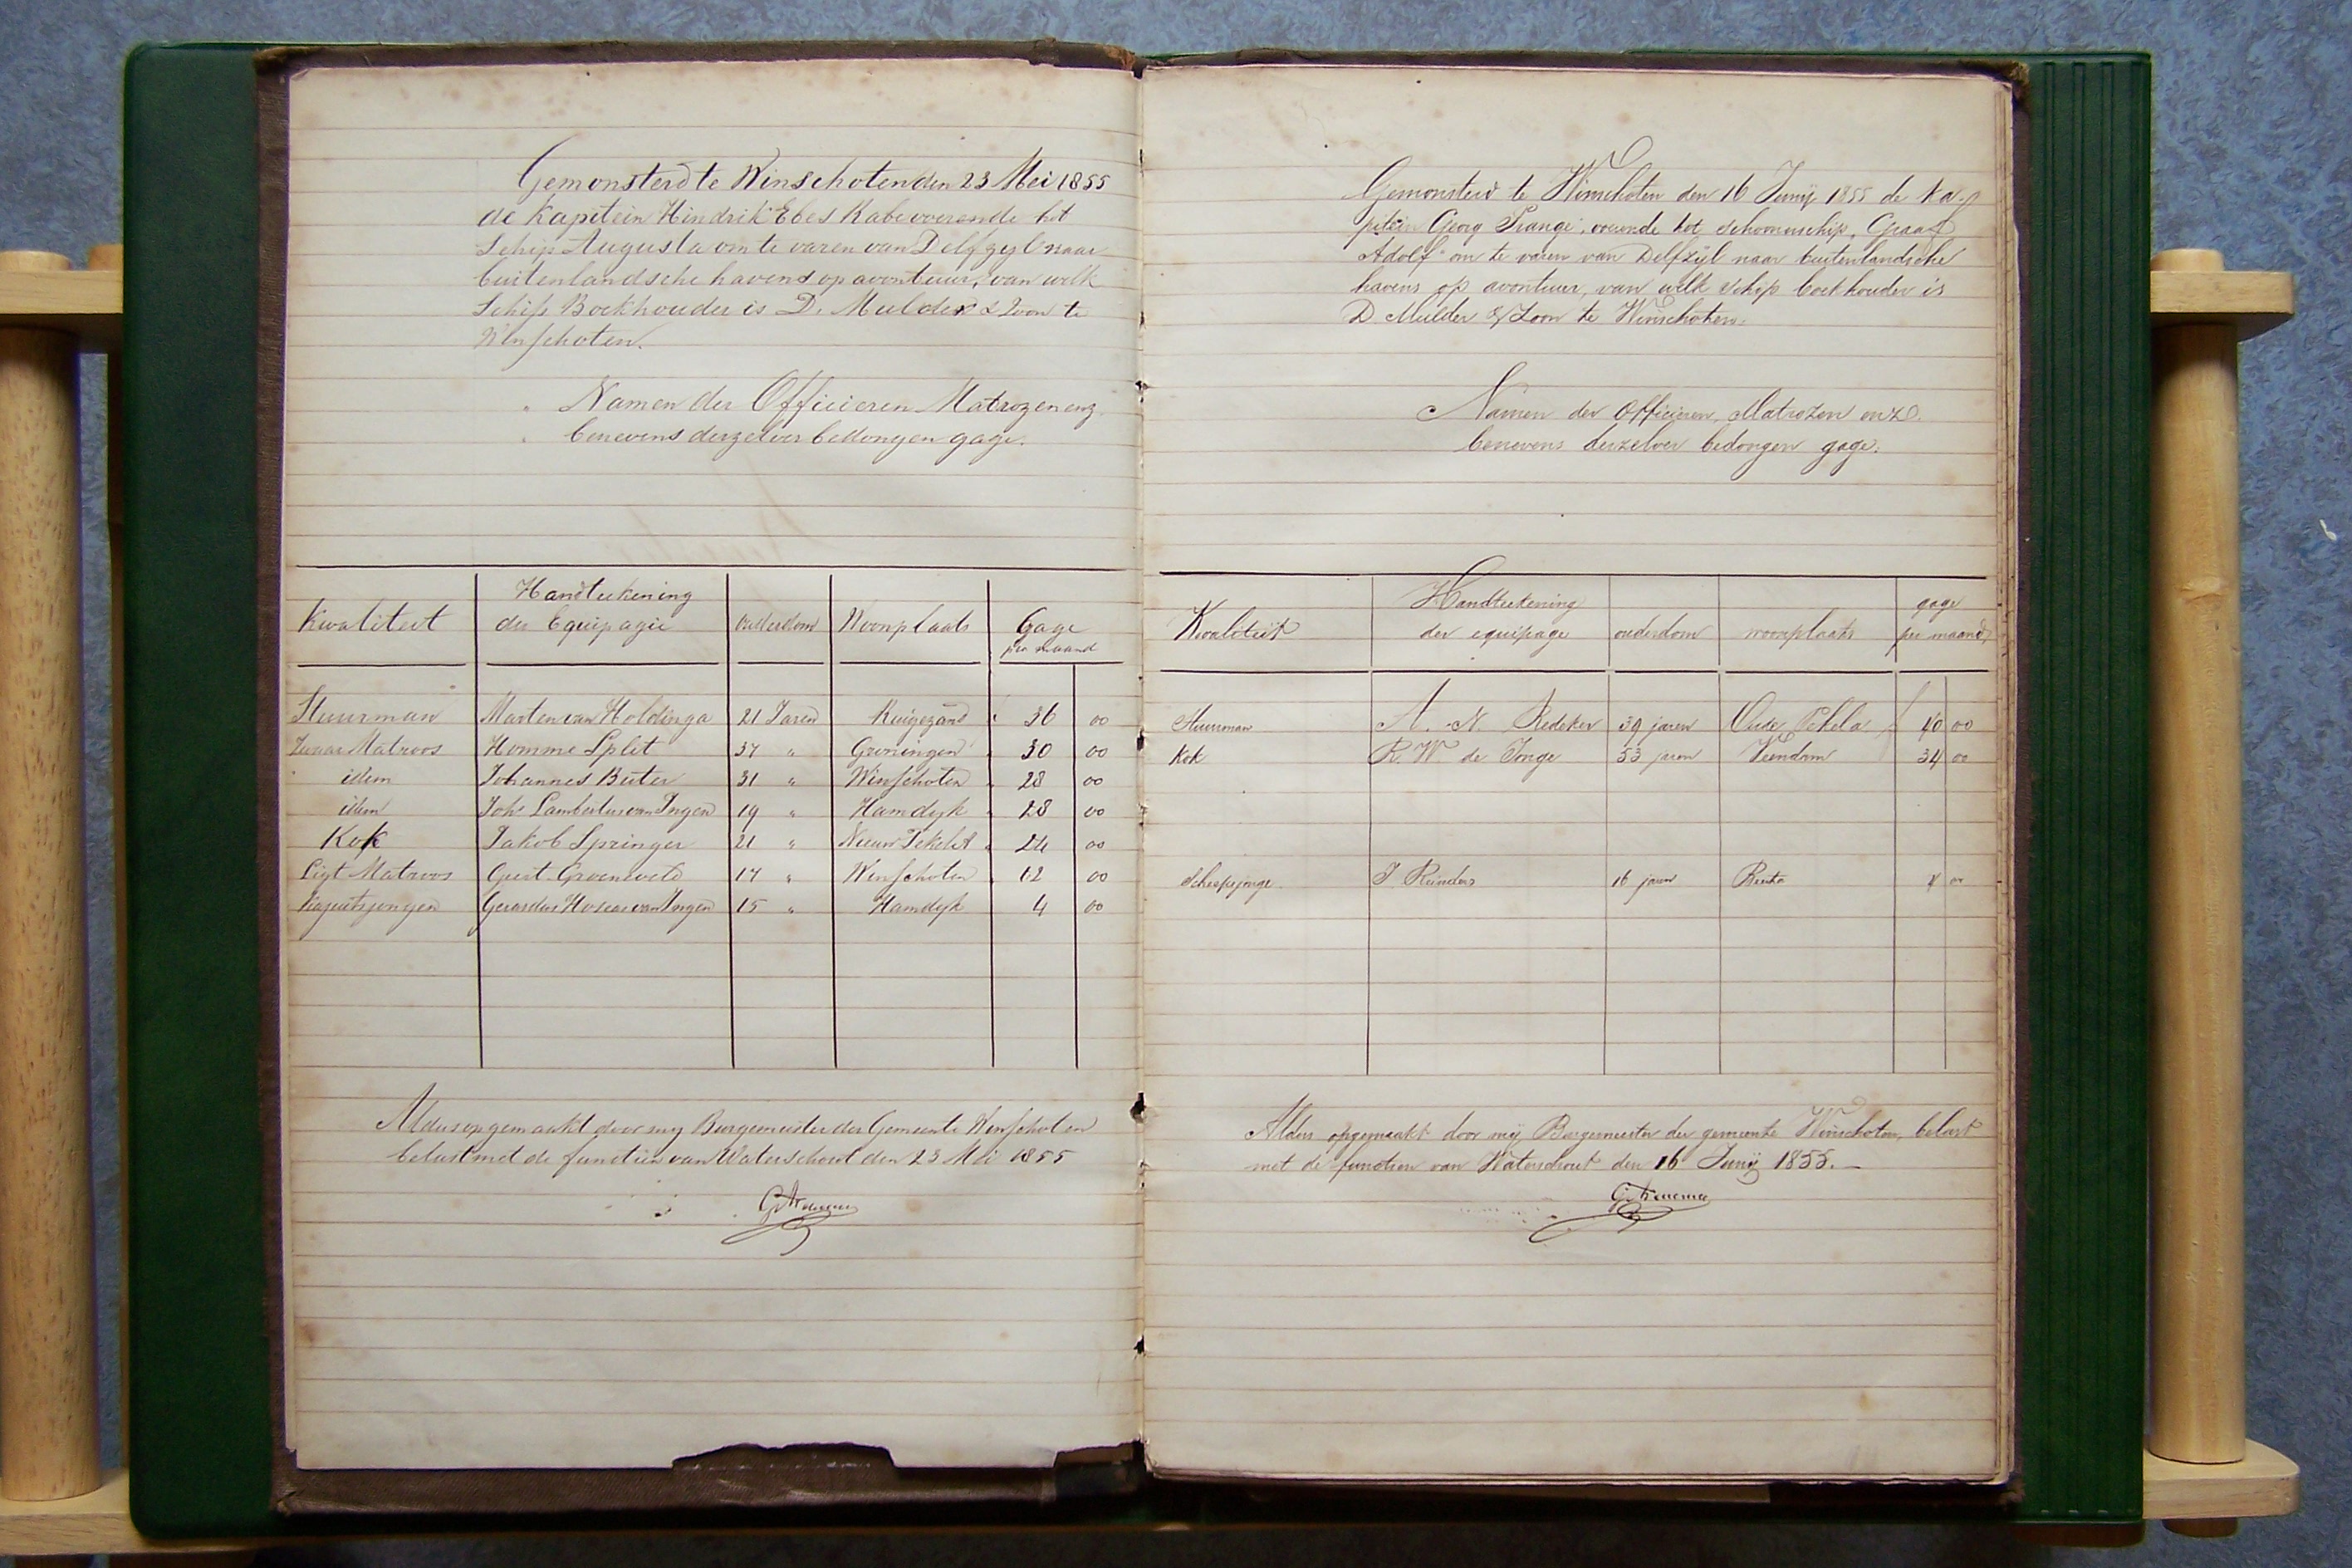 Gemonsterd te Winschoten den 23 Mei 1855
de Kapitein Hindrik Ebes Kabe voerende het
Schip Augusta om te varen van Delfzyl naar
buitenlandsche havens op avontuur, van welk
Schip Boekhouder is D. Mulder & Zoon te
Winschoten.
Namen der Officieren Matrozen enz.
benevens derzelver bedongen gage.
Kwaliteit Handteekening der Equipagie Ouderdom Woonplaats Gage per maand
Stuurman Marten van Holdinga 21 Jaren Ruigezand 36 00
Zwaar Matroos Homme Split 37 " Groningen 30 00
idem Johannes Buter 31 " Winschoten 28 00
idem Johs Lambertus van Ingen 19 " Hamdyk 28 00
Kok Jakob Springer 21 " Nieuw Pekela 24 00
Ligt Matroos Geert Groeneveld 17 " Winschoten 12 00
Kajuitsjongen Gerardus van Ingen 15 " Hamdyk 4 00
Aldus opgemaakt door my Burgemeester der Gemeente Winschoten
belast met de functiën van Waterschout den 23 Mei 1855
Gemonsterd te Winschoten den 16 Junij 1855 de Ka-
pitein Georg Prange, voerende het schoonerschip, Graaf
Adolf" om te varen van Delfzijl naar buitenlandsche
havens op avontuur, van welk schip boekhouder is
D. Mulder & Zoon te Winschoten.
Namen der Officieren, Matrozen enz.
benevens derzelver bedongen gage.
Kwaliteit Handteekening der equipage ouderdom woonplaats gage per maand
Stuurman A. N. Redeker 39 jaren Oude Pekela f 40 00
Kok R W de Jonge 53 jaren Veendam 34 00
Scheepsjonge J. Reinders 16 jaren Beerta 4 00
Aldus opgemaakt door mij Burgemeester der gemeente Winschoten, belast
met de functien van Waterschout den 16 Junij 1855.